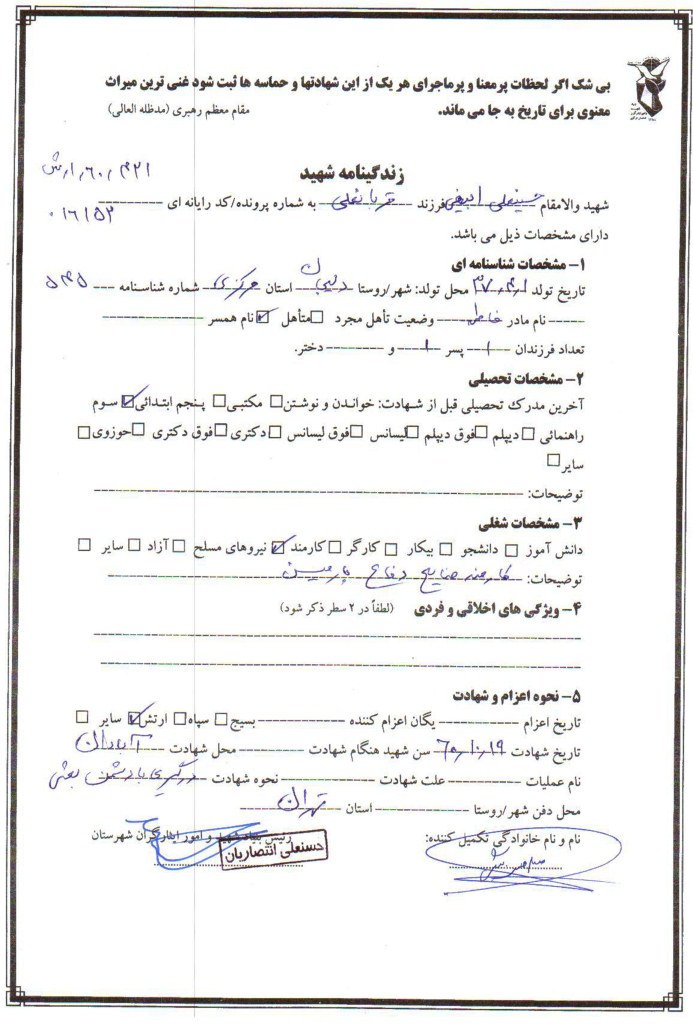 بی شک اگر لحظات پرمعنا و پرماجرای هر یک از این شهادتها و حماسه ها ثبت شود غنی ترین میراث
معنوی برای تاریخ به جا می ماند.
مقام معظم رهبری (مدظله العالی)
زندگینامه شهید
شهید والامقام حسینعلی فرزند قربانعلی به شماره پرونده/کد رایانه ای
دارای مشخصات ذیل می باشد.
۱- مشخصات شناسنامه ای
تاریخ تولد محل تولد: شهر/روستا دلیجان استان مرکزی شماره شناسنامه ۵۴۵
نام مادر وضعیت تأهل مجرد متأهل نام همسر
تعداد فرزندان ۱ پسر ۱ و دختر.
۲- مشخصات تحصیلی
آخرین مدرك تحصیلی قبل از شهادت: خواندن و نوشتن مکتبی پنجم ابتدائی سوم
راهنمائی دیپلم فوق دیپلم لیسانس فوق لیسانس دکتری فوق دکتری حوزوی
سایر
توضیحات:
۳- مشخصات شغلی
دانش آموز دانشجو بیکار کارگر کارمند نیروهای مسلح آزاد سایر
توضیحات: کارمند صنایع دفاع پارچین
۴- ویژگی های اخلاقی و فردی (لطفاً در ۲ سطر ذکر شود)
۵- نحوه اعزام و شهادت
تاریخ اعزام یگان اعزام کننده بسیج سپاه ارتش سایر
تاریخ شهادت ۶۰،۱۰،۱۹ سن شهید هنگام شهادت محل شهادت آبادان
نام عملیات علت شهادت نحوه شهادت درگیری با دشمن بعثی
محل دفن شهر/روستا استان تهران
نام و نام خانوادگی تکمیل کننده:
رئیس بنیاد شهید و امور ایثارگران شهرستان
حسنعلی انتصاریان